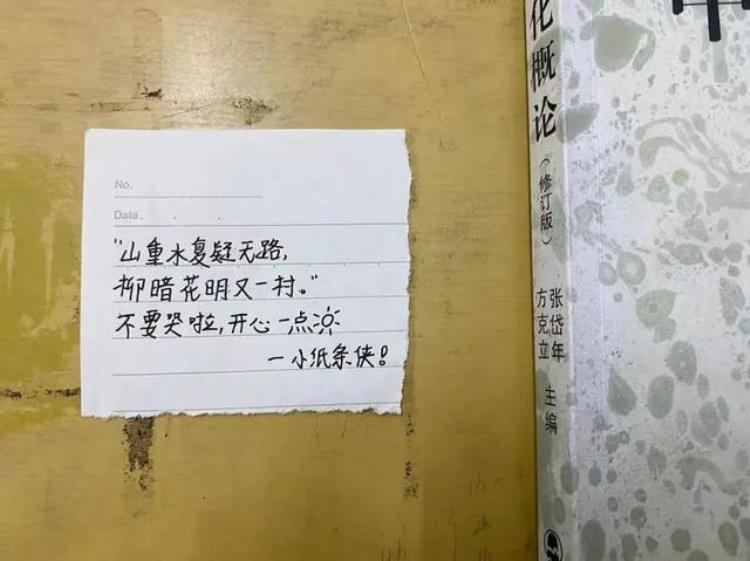 No.
Data.
"山重水复疑无路,
柳暗花明又一村。"
不要哭啦,开心一点
一小纸条侠!
化概论
(修订版)
张岱年
方克立
主编